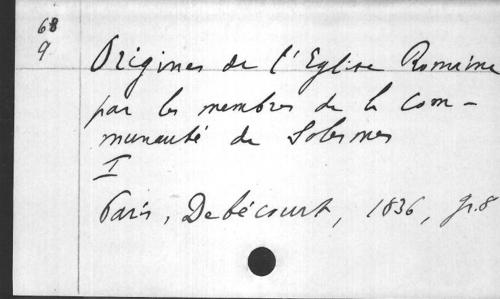 68
9
Origines de l'Eglise Romaine
par les membres de la Com-
munauté de Solesmes
I
Paris, Debécourt, 1836, gr. 8